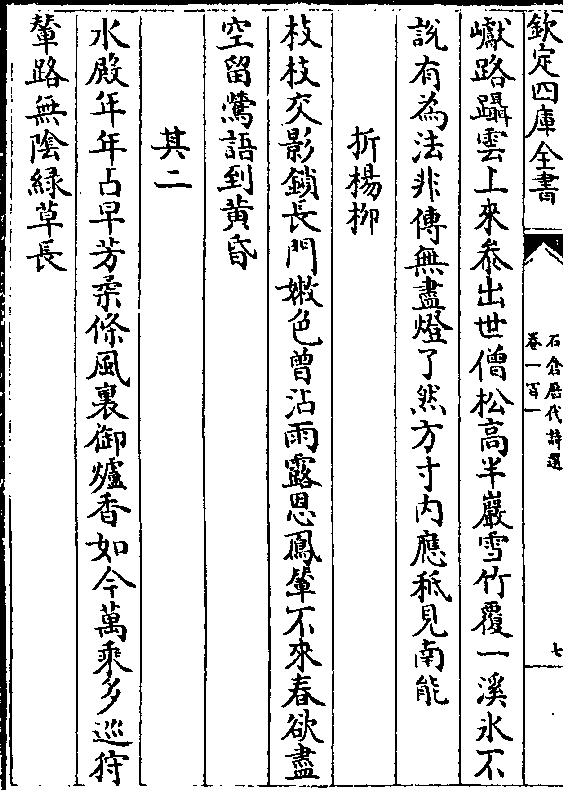 欽定四庫全書
石倉歷代詩選
卷一百一
七
巘路躡雲上來叅出世僧松高半巖雪竹覆一溪氷不
說有為法非傳無盡燈了然方寸内應秪見南能
折楊柳
枝枝交影鎖長門嫩色曾沾雨露恩鳳輦不來春欲盡
空留鶯語到黄昏
其二
水殿年年占早芳柔條風裏御爐香如今萬乘多巡狩
輦路無陰緑草長